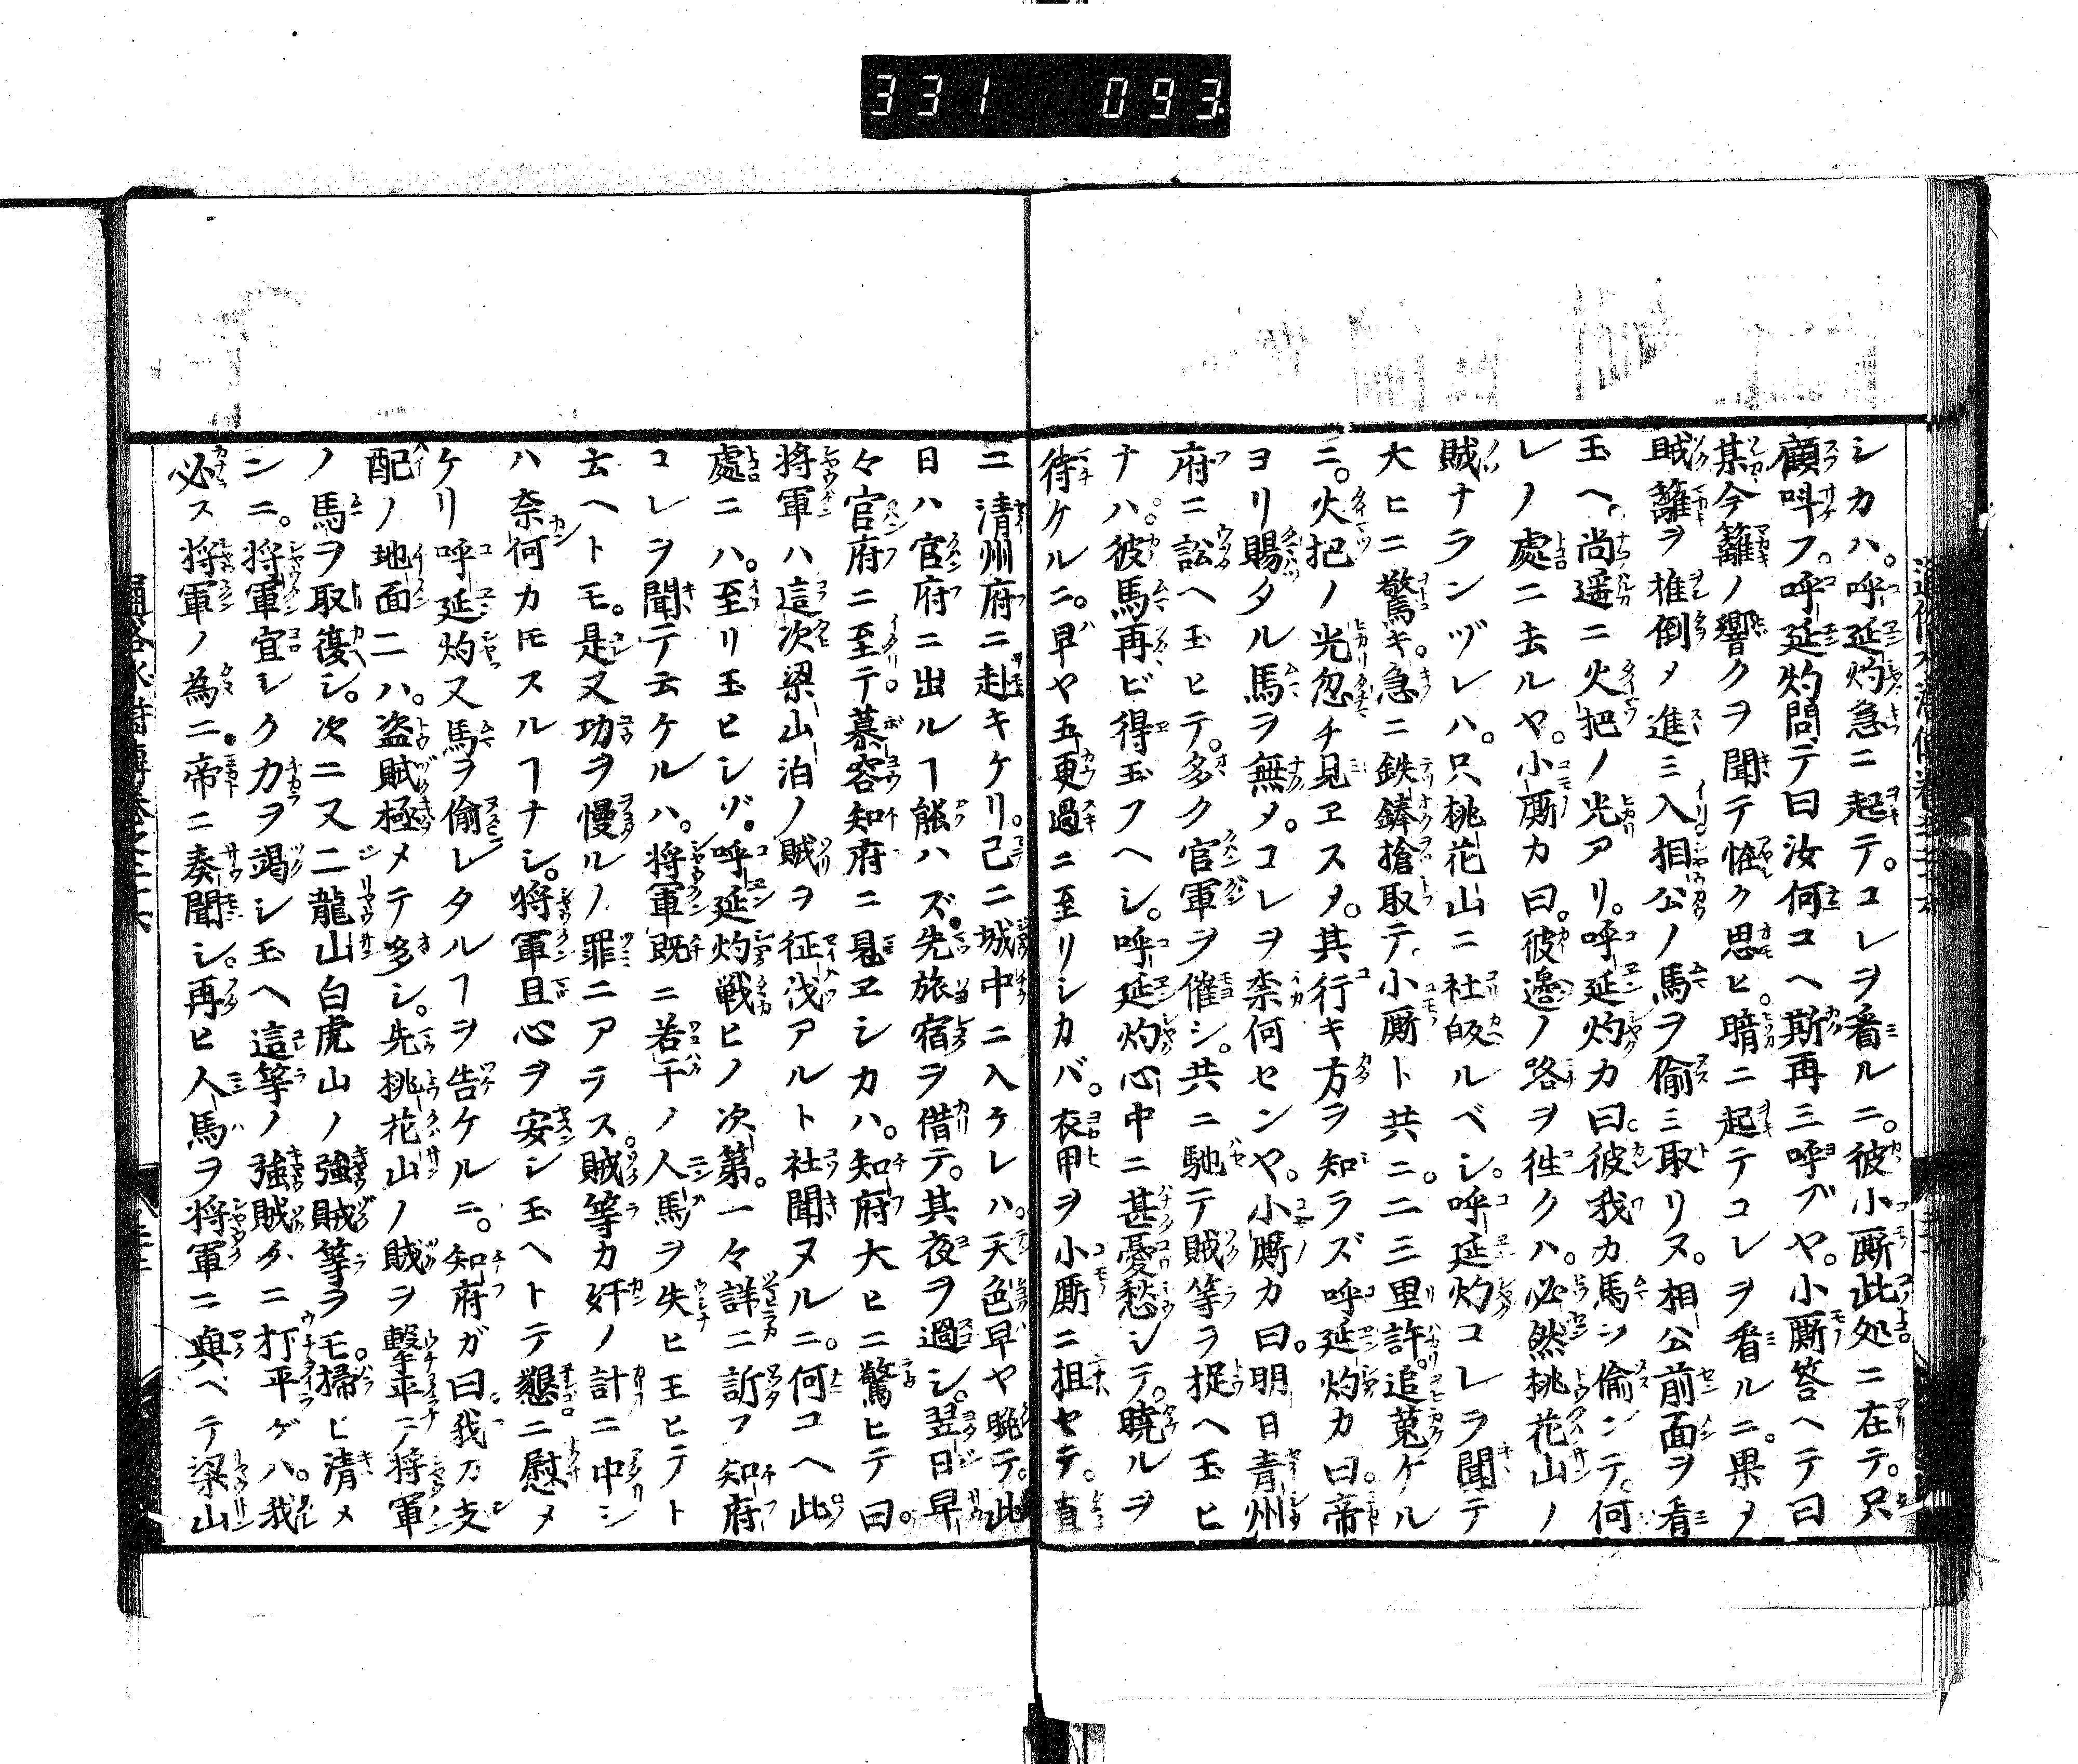 331 093
シカハ。呼延灼急ニ起テ。コレヲ看ルニ。彼小厮此処ニ在テ。只
顧呌フ。呼延灼問テ曰汝何コヘ斯再三呼ブヤ。小厮答ヘテ曰
某今籬ノ響クヲ聞テ恠ク思ヒ。暗ニ起テコレヲ看ルニ。果メ
賊籬ヲ推倒メ進ミ入相公ノ馬ヲ偷ミ取リヌ。相公前面ヲ看
玉ヘ。尚遥ニ火把ノ光アリ。呼延灼カ曰彼我カ馬ヲ偷ンテ。何
レノ處ニ去ルヤ。小厮カ曰。彼邉ノ路ヲ徃クハ。必然桃花山ノ
賊ナランヅレハ。只桃花山ニ社皈ルベシ。呼延灼コレヲ聞テ
大ヒニ驚キ。急ニ鉄鋒搶取テ。小厮ト共ニ。二三里許追蒐ゲル
ニ。火把ノ光忽チ見ヱスメ。其行キ方ヲ知ラズ呼延灼カ曰。帝
ヨリ賜タル馬ヲ無メ。コレヲ柰何センヤ。小厮カ曰。明日青州
府ニ訟ヘ玉ヒテ。多ク官軍ヲ催シ。共ニ馳テ賊等ラ捉ヘ玉ヒ
ナハ。彼馬再ビ得玉フヘシ。呼延灼心中ニ甚憂愁シテ。曉ルヲ
待ケルニ。早ヤ五更過ニ至リシカバ。衣甲ヲ小厮ニ担セテ。直
ニ清州府ニ赴キケリ。已ニ城中ニ入ケレハ。天色早ヤ晩テ。此
日ハ官府ニ出ルヿ能ハズ。先旅宿ヲ借テ。其夜ヲ過シ。翌日早
々官府ニ至テ慕容知府ニ見ヱシカハ。知府大ヒニ驚ヒテ曰。
将軍ハ這次梁山泊ノ賊ヲ征伐アルト社聞ヌルニ。何コヘ此
處ニハ。至リ玉ヒシゾ。呼延灼戦ヒノ次第。一々詳ニ訴フ知府
コレヲ聞テ云ケルハ。将軍既ニ若干ノ人馬ヲ失ヒ王ヒテト
云ヘトモ。是又功ヲ慢ルノ罪ニアラス。賊等カ奸ノ計ニ中シ
ハ奈何カモスルヿナシ。将軍且心ヲ安シ玉ヘトテ懇ニ慰メ
ケリ呼延灼又馬ヲ偷レタルヿヲ告ケルニ。知府ガ曰我乃支
配ノ地面ニハ。盗賊極メテ多シ。先桃花山ノ賊ヲ撃平ニ将軍
ノ馬ヲ取復シ。次ニ又二龍山白虎山ノ強賊等ヲモ。掃ヒ清メ
ンニ。将軍宜シク力ヲ竭シ玉ヘ這等ノ強賊タニ打平ゲハ。我
必ス将軍ノ為ニ。帝ニ奏聞シ。再ヒ人馬ヲ将軍ニ與ヘテ梁山